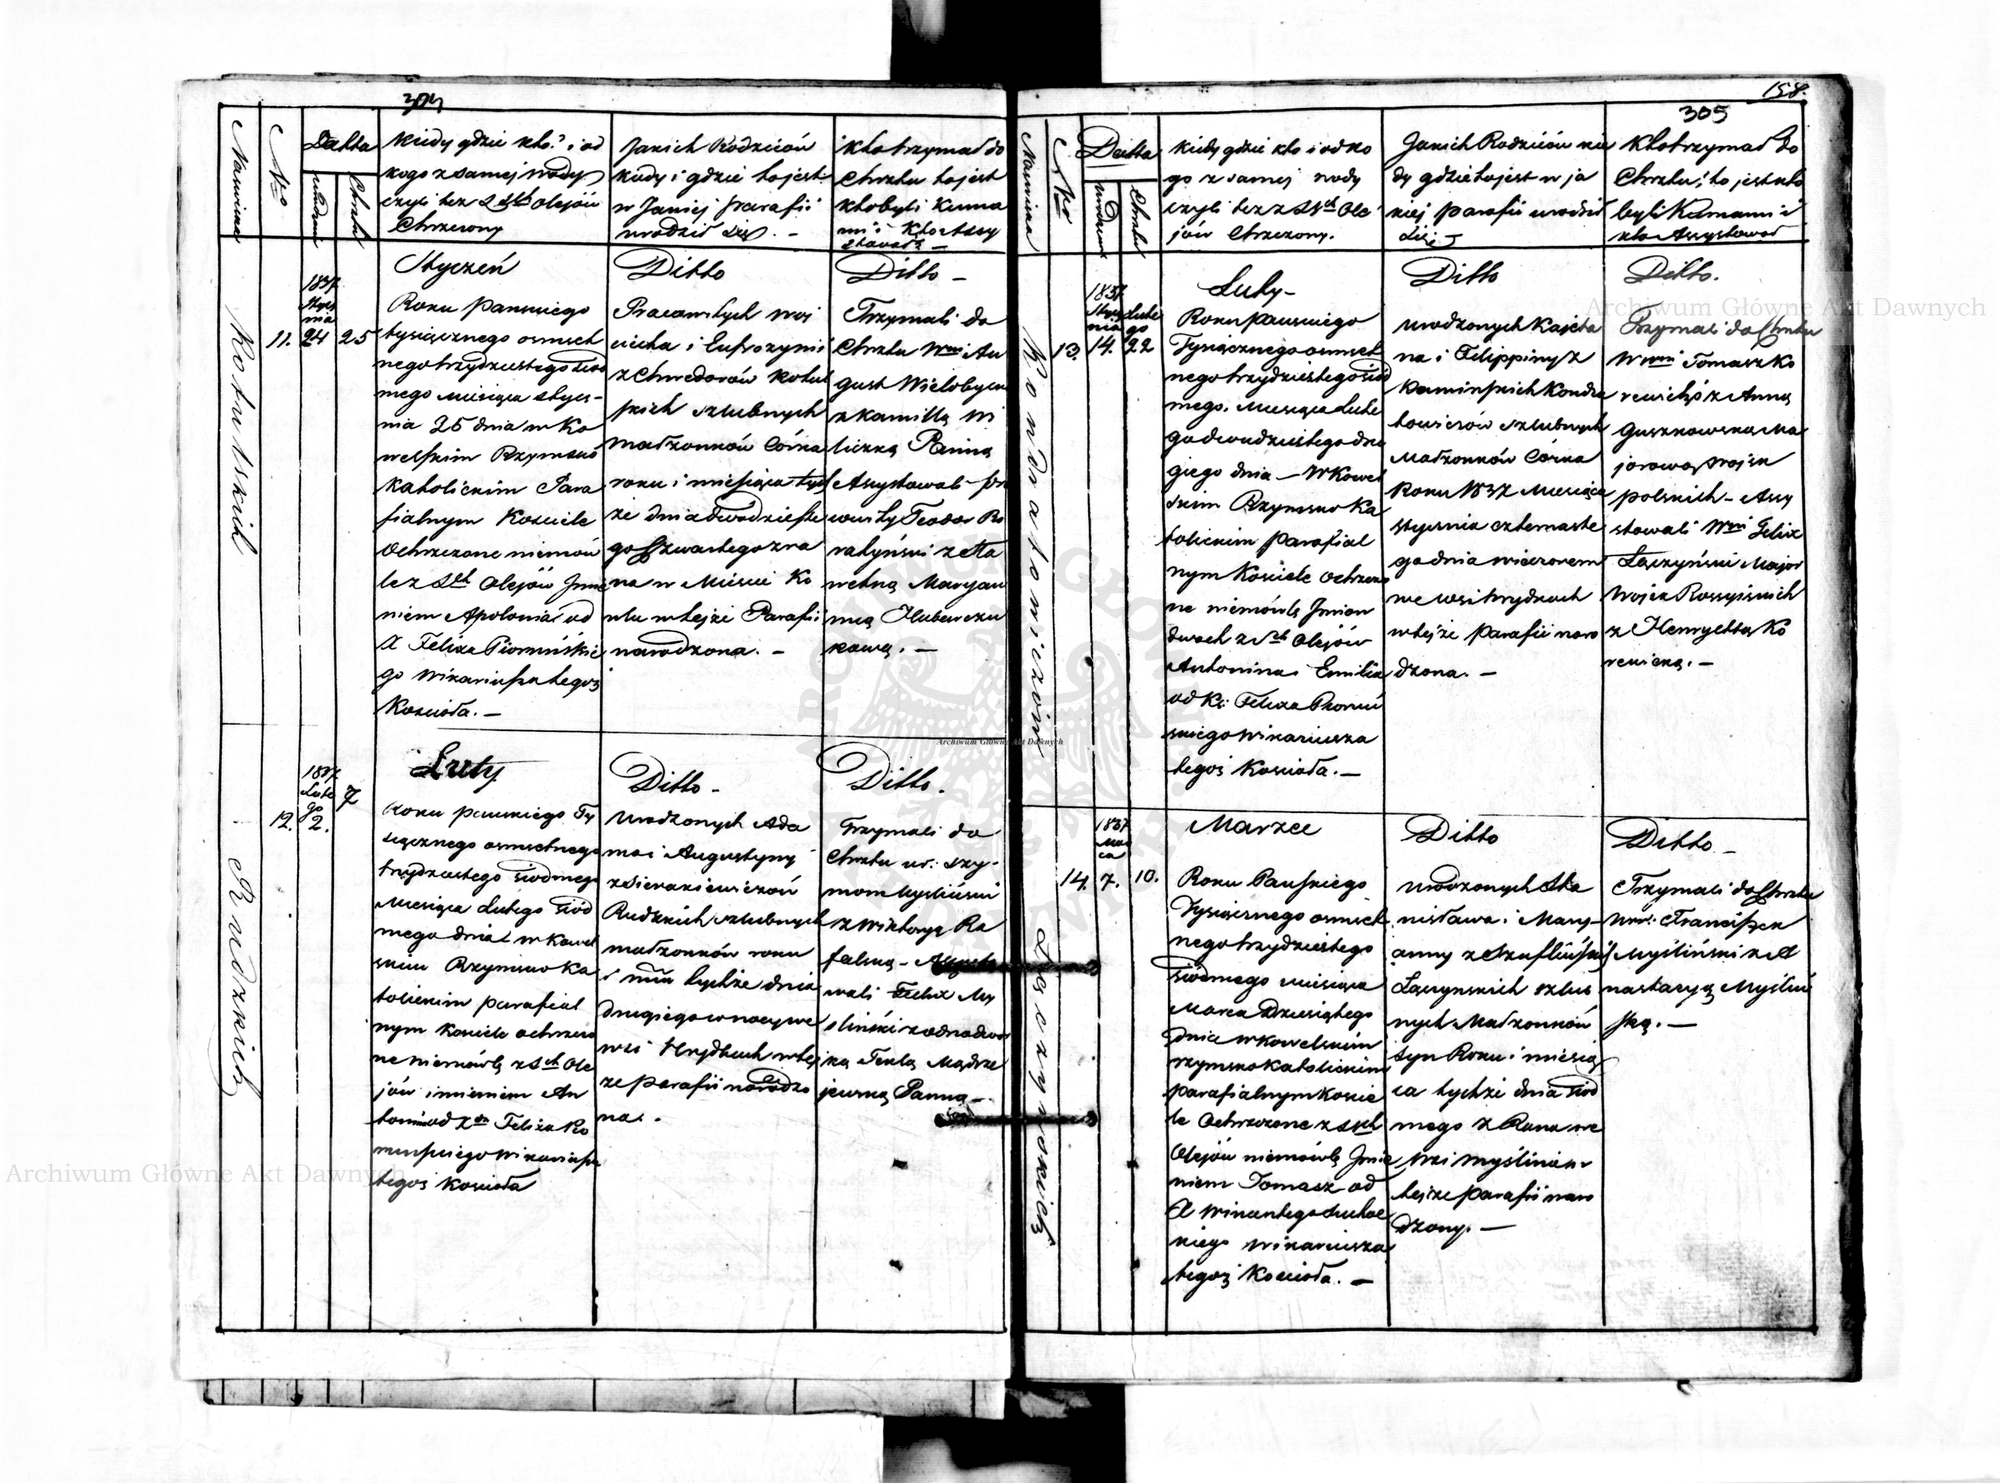 304
Nazwiska
Nro
Datta
urodzenia
Chrztu
Kiedy gdzie kto? i od
kogo z samej wody
czyli tez z SSch Olejów
Chrzczony
Jakich Rodziców
kiedy i gdzie to jest
w Jakiej parafii
urodził się. -
kto trzymał do
Chrztu to jest
kto byli Kuma
mi i kto assy
stował -
Kotulskich
11.
1837
Stycz
nia
24
25
Styczeń
Roku Pańskiego
tysiącznego ośmset
nego trzydziestego siod
mego Miesiąca Stycz-
nia 25 dnia w Ko
welskim Rzymsko
Katolickim Para
fialnym Kosciele
Ochrzczone niemow
le z SSch Olejów Jmie
niem Apolonia od
X Feliza Piomińskie
go Wikariusza tegoż
Kościoła. -
Ditto
Pracowitych Woj
ciecha i Eufrozynii
z Chwedorów Kotul
skich szlubnych
małżonków Córka
roku i miesiąca tych
że dnia dwodzieste
go czwartego zra
na w Mieście Ko
wlu w tejże Parafii
narodzona. -
Ditto -
Trzymali do
Chrztu Wni Au
gust Wielobycki
z Kamillą Wi
licką Panną
Assystowali
Teodor Ro
ratyński z
Maryan
ną
kową. -
Rudzkich
12.
1837
Lute
go
2.
7
Luty
Roku pańskiego Ty
siącznego osmsetnego
trzydziestego siodmego
Miesiąca Lutego siód
mego dnia w Kowel
skim Rzymsko Ka
tolickim parafial
nym kosciele ochrzczo
ne niemowlę z SSch Ole
jów imieniem An
toni od Xdza Feliza Pio
minskiego wikariusza
tegoż kosciola
Ditto -
Urodzonych Ada
ma i Augustyny
z Sierakiewiczów
Rudzkich szlubnych
małżonków roku
i mca tychże dnia
drugiego w nocy we
wsi Hrydkach w tej
ze parafii narodzo
na.
Ditto.
Trzymali do
Chrztu ur: Szy-
mon Mysliński
z Wiktoryą Ra
falską - Assysto
wali Felix My
sliński z
Teklą Mądrze
jewską Panną -
158.
305
Nazwiska
Nro
Datta
Urodzenia
Chrztu
Kiedy gdzie kto i od ko
go z samej wody
czyli tez z SSch Ole
jów Chrzczony.
Jakich Rodziców kie
dy gdzie to jest w ja
kiej parafii urodził
się -
Kto trzymał do
Chrztu, to jest kto
byli Kumami i
kto Assystował
Kondratowiczów
13.
1837
Stycz
nia
14.
Lute
go
22
Luty -
Roku Pańskiego
Tysiącznego osmset
nego trzydziestego siod
mego. Miesiąca Lute
go dwudziestego dru
giego dnia - w Kowel
skim Rzymsko Ka
tolickim parafial
nym Kosciele Ochrzczo
ne niemowlę Jmion
dwoch z SSch Olejów
Antonina i Emilia
od X: Feliza Piomiń
skiego Wikariusza
tegoż Kosciola. -
Ditto
Urodzonych Kajeta
na i Filippiny z
Kaminskich Kondra
towiczów szlubnych
Małżonków Córka
Roku 1837 Miesiąca
Stycznia czternaste
go dnia wieczorem
we wsi Hrydkach
w tejże parafii naro
dzona. -
Ditto.
Trzymali do Chrztu
Wwni Tomasz Ko
rewicki z Anną
Guszkowską Ma
jorową Wojsk
polskich - Assy
stowali Wni Felix
Łączyński Major
Wojsk Rossyiskich
z Henryettą Ko
rewicką. -
Łączynskich
14.
1837
Mar
ca
7.
10.
Marzec
Roku Pańskiego
Tysiącznego osmset
nego trzydziestego
siodmego miesiąca
Marca Dziesiątego
dnia w Kowelskim
rzymsko Katolickim
parafialnym koscie
le Ochrzczone z SSch
Olejów niemowlę Jmie
niem Tomasz od
X Wincentego Suchoc
kiego Wikariusza
tegoż Kosciola. -
Ditto
Urodzonych Sta
nisława i Mary-
anny z Szafliński
Łączynskich szlub
nych Małżonków
syn Roku i miesią
ca tychże dnia siod
mego z Rana we
wsi Myślinie w
tejże parafii naro
dzony. -
Ditto -
Trzymali do Chrztu
Wni: Franciszek
Myśliński z A
nastazyą Myśliń
ską. -
Archiwum Główne Akt Dawnych
Archiwum Główne Akt Dawnych
Archiwum Główne Akt Dawnych